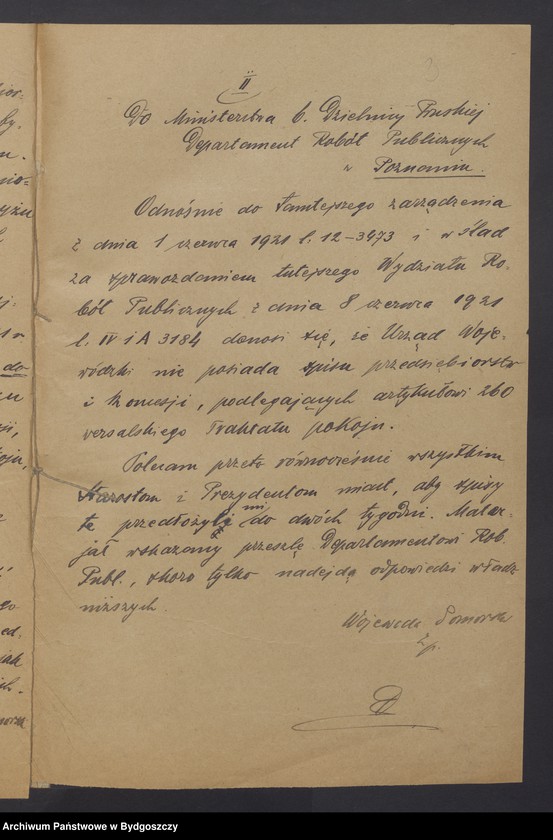 II
Do Ministerstwa b. Dzielnicy Pruskiej
Departament Robót Publicznych
w Poznaniu.
Odnośnie do tamtejszego zarządzenia
z dnia 1 czerwca 1921 l. 12-3473 i w ślad
za sprawozdaniem tutejszego Wydziału Ro-
bót Publicznych z dnia 8 czerwca 1921
l. IV i A 3184 donosi się, że Urząd Woje-
wódzki nie posiada spisu przedsiębiorstw
i koncesji, podlegających artykułowi 260
wersalskiego Traktatu pokoju.
Polecam przeto równocześnie wszystkim
Starostom i Prezydentom miast, aby spisy
te przedłożyli mi do dwóch tygodni. Mater-
jał wskazany prześlę Departamentowi Rob.
Publ., skoro tylko nadejdą odpowiedzi władz
niższych.
Wojewoda Pomorski
z p.
Archiwum Państwowe w Bydgoszczy